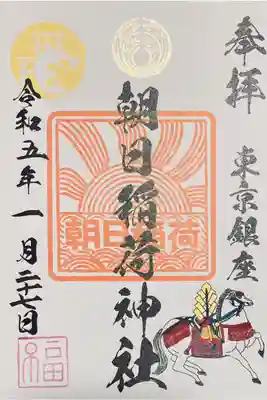 奉拝
東京銀座
朝日稲荷神社
朝日稲荷
令和五年一月二十七日
福